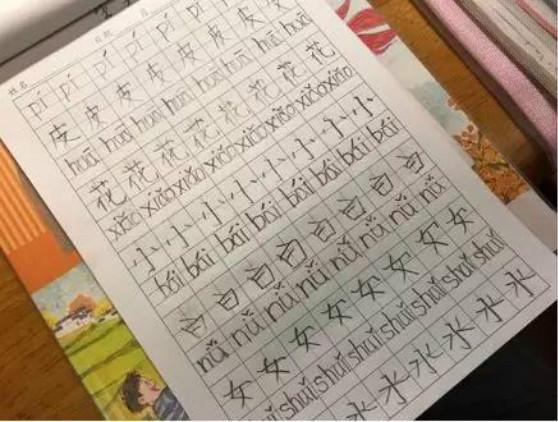 姓名 日期
pí pí pí pí pí pí pí pí
皮 皮 皮 皮 皮 皮 皮 皮
huā huā huā huā huā huā huā huā
花 花 花 花 花 花 花 花
xiǎo xiǎo xiǎo xiǎo xiǎo xiǎo xiǎo xiǎo
小 小 小 小 小 小 小 小
bái bái bái bái bái bái bái bái
白 白 白 白 白 白 白 白
nǚ nǚ nǚ nǚ nǚ nǚ nǚ nǚ
女 女 女 女 女 女 女 女
shuǐ shuǐ shuǐ shuǐ shuǐ shuǐ shuǐ shuǐ
水 水 水 水 水 水